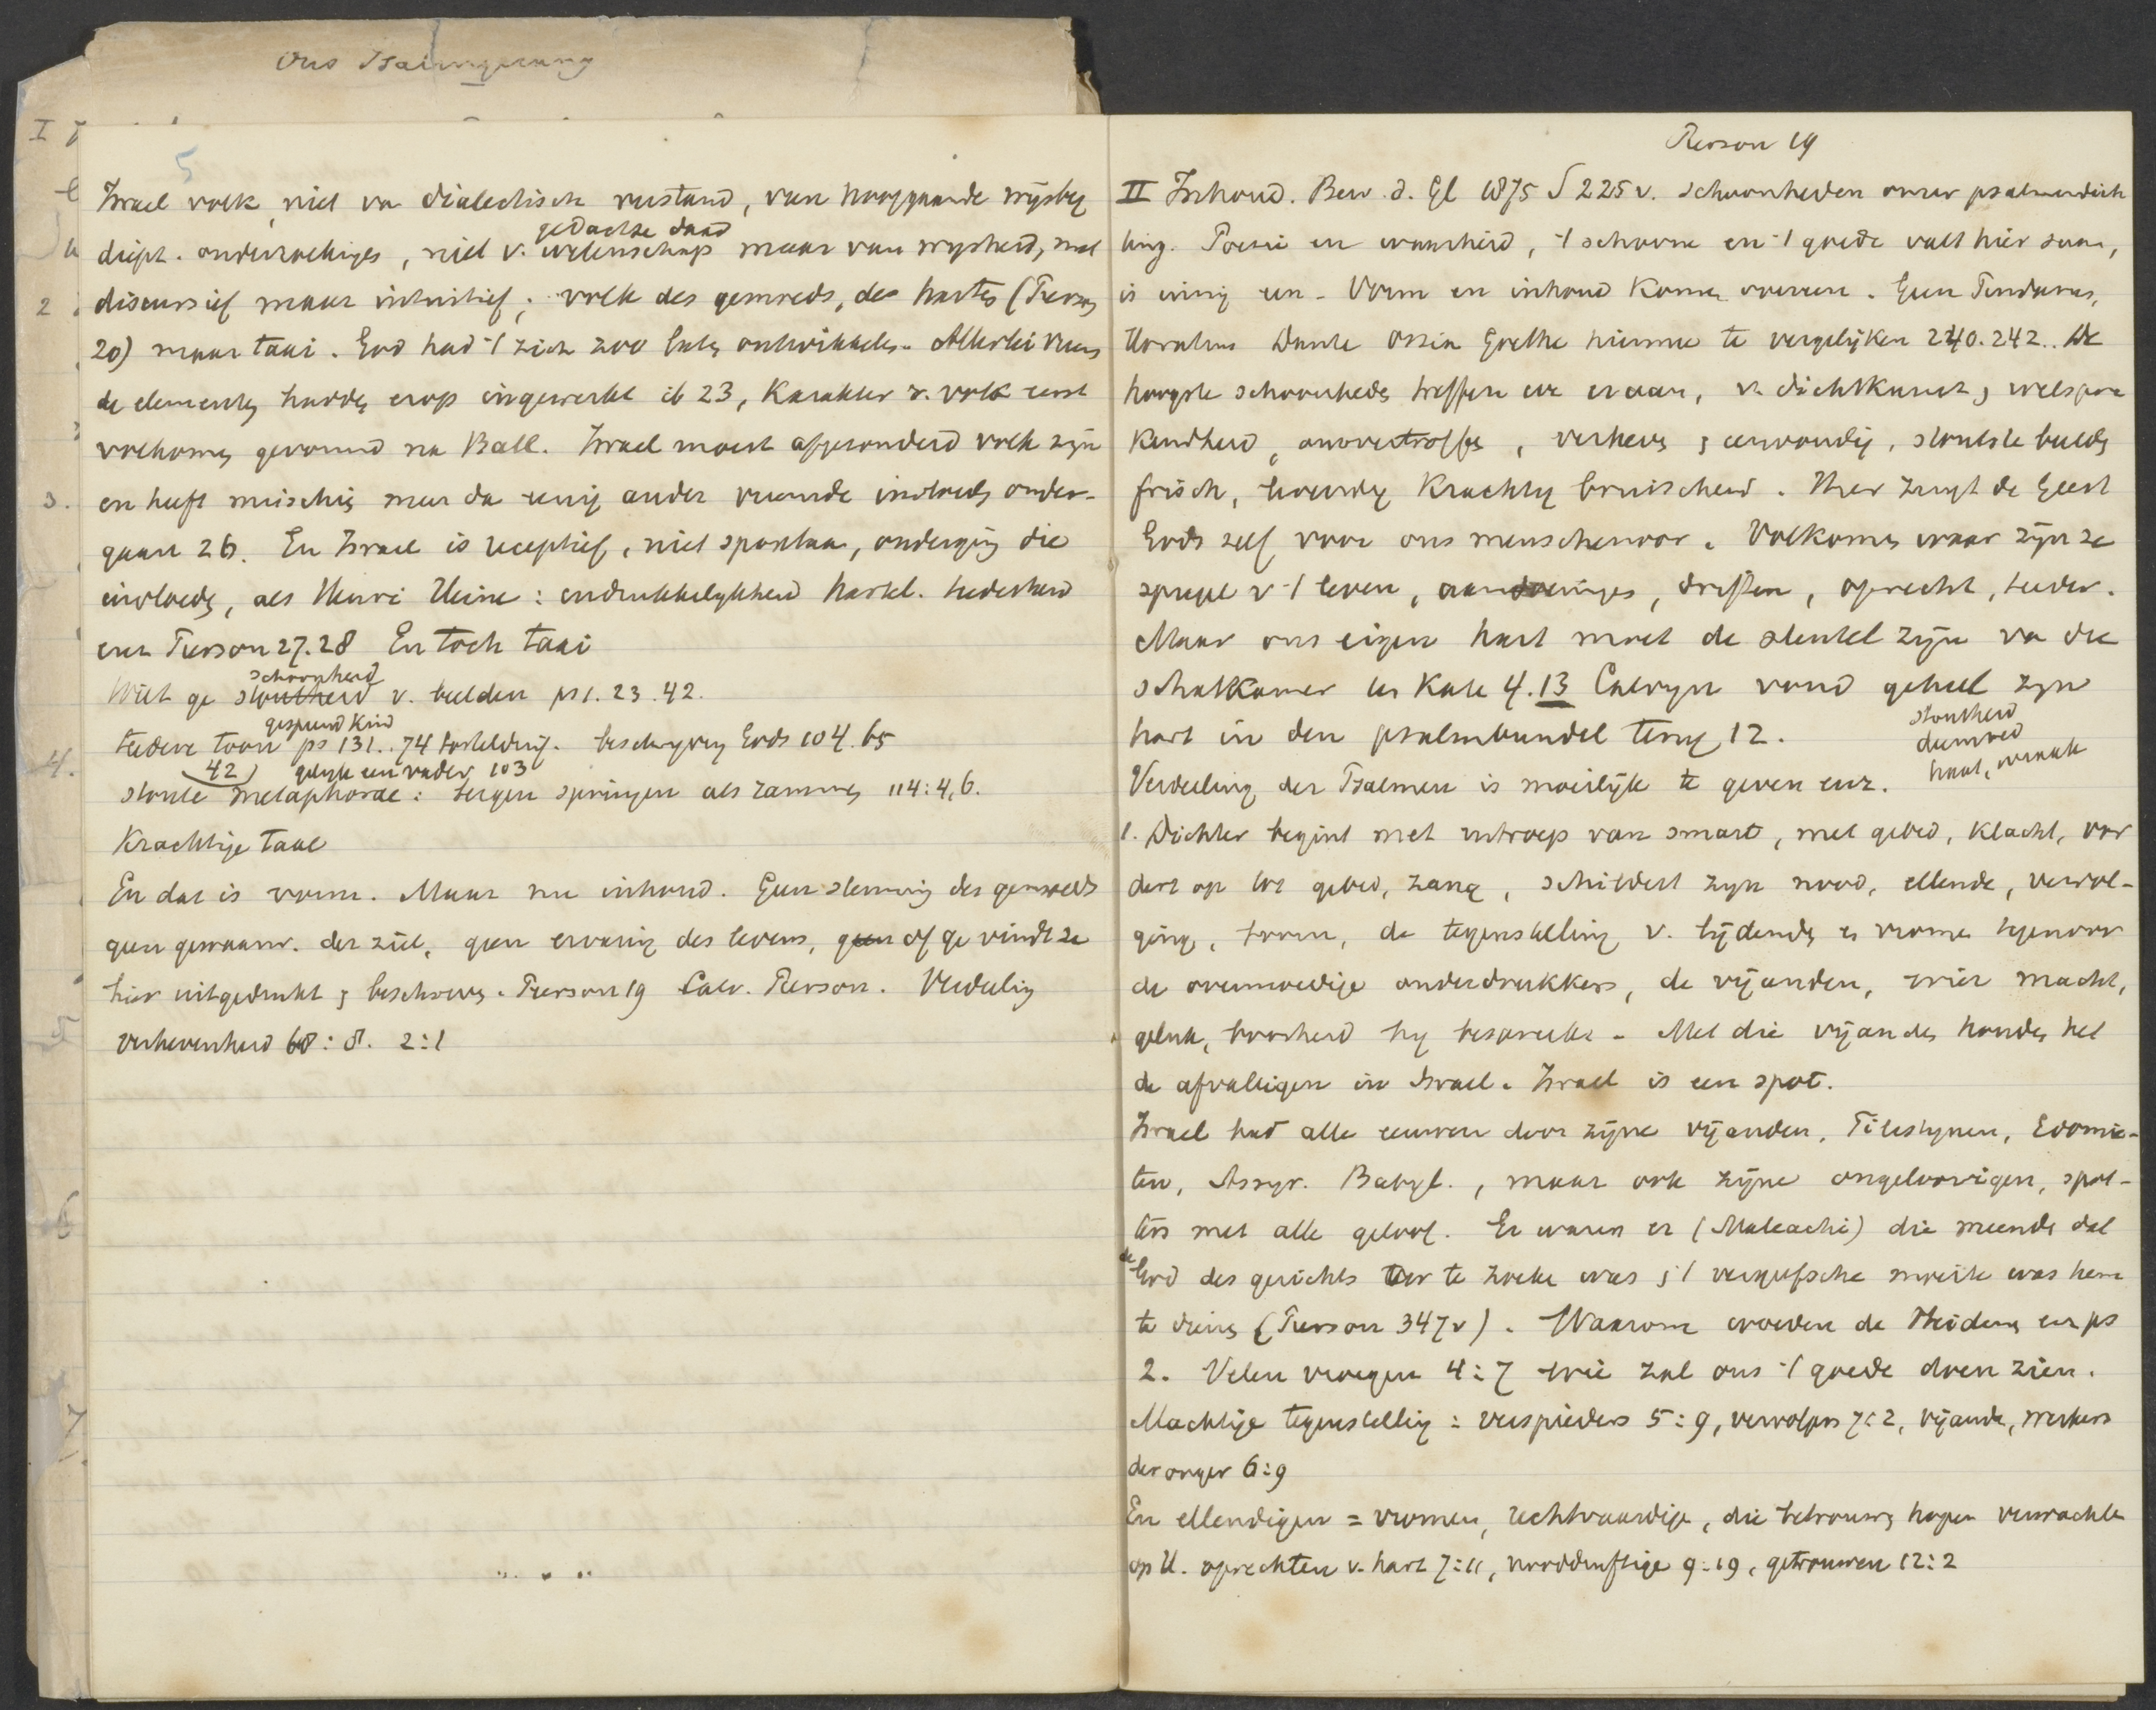 Ons Psalmgezang
5
Israel volk niet va dialectisch verstand, van hooggaande wijsbeg
gedachte daad
diept. onderzoekinges, niet v. wetenschap maar van wysheid, niet
discursief maar intuitief; volk des gemoeds, des hartes (Pierson
20) maar taai. God had 't zich zoo laten ontwikkelen. Allerlei vreem
de elementen hadden erop ingewerkt ib 23, Karakter v. volk eerst
volkomen gevormd na Ball. Israel moest afgezonderd volk zijn
en heeft misschien meer da eenig ander vreemde invloeden onder-
gaan 26. En Israel is receptief, niet spontaan, onderging die
invloeden, als Henri Heine: indrukkelykheid hartel. teederheid
enz Pierson 27.28 En toch taai
schoonheid
Wilt ge stoutheid v. beelden ps 1. 23. 42.
gespeend kind
teedere toon ps 131. 74 beschryving Gods 104. 65
42 gelijk een vader 103
stoute metaphorae: bergen springen als rammen 114:4,6.
Krachtige taal
En dat is vorm. Maar nu inhoud. Geen stemming des gemoeds
geen gewaarw. der ziel, geen ervaring des levens, geen of ge vindt ze
hier uitgedrukt & beschreven. Pierson 19 Calv. Pierson. Verdeeling
verhevenheid 68:8. 2:1
Pierson 19
II Inhoud. Bew. d. Gl 1875 S 225 v. schoonheden onzer psalmendich
ting. Poezie en waarheid, 't schoone en 't goede valt hier saam,
is innig een. Vorm en inhoud komen overeen. Geen Pindarus,
Horatius Dante Ossian Goethe hiermee te vergelijken 240.242.. De
hoogste schoonheden treffen we er aan, v. dichtkunst & welspre
kendheid, onovertroffen, verheven & eenvoudig, stoutste beelden
frisch, krachtig bruischend. Hier zingt de Geest
Gods zelf voor ons menschen voor. Volkomen waar zijn ze
spiegel v 't leven, aandoeninges, driften, oprecht, teeder.
Maar ons eigen hart moet de sleutel zijn va die
schatkamer ter Kate 4.13 Calvyn vond geheel zyn
hart in den psalmbundel terug 12.
stoutheid
deemoed
haat, wraak
Verdeeling der Psalmen is moeilijk te geven enz.
1. Dichter begint met uitroep van smart, met gebed, klacht, vor
dert op tot gebed, zang, schildert zyn nood, ellende, vervol-
ging, toorn, de tegenstelling v. lijdende & vrome tegenover
de overmoedige onderdrukkers, de vijanden, wier macht,
geluk, boosheid hy bespreekt. Met die vijanden houden het
de afvalligen in Israel. Israel is een spot.
Israel had alle eeuwen door zijne vijanden, Filistynen, Edomie-
ten, Assyr. Babyl., maar ook zijne ongeloovigen, spot-
ters met alle geloof. Er waren er (Maleachi) die meende dat
de God des gerichts ver te zoeke was & 't vergeefsche moeite was hem
te dienen (Pierson 347v). Waarom woeden de Heidenen enz ps
2. Velen vroegen 4:7 wie zal ons 't goede doen zien.
Machtige tegenstelling: verspieders 5:9, vervolgers 7:2, vijande, werkers
der onger 6:9
En ellendigen = vromen, rechtvaardige, die betrouwen hopen verwachten
op U. oprechten v. hart 7:11, nooddruftige 9:19, getrouwen 12:2